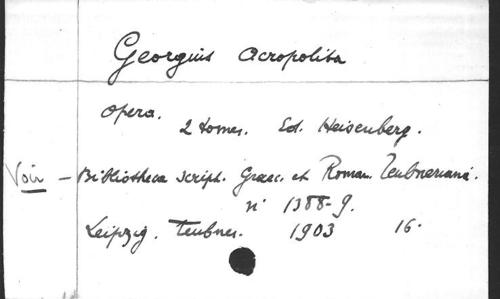 Georgius Acropolita
Opera.
2 tomes. Ed. Heisenberg.
Voir - Bibliotheca script. Graec. et Roman. Teubneriana.
n° 1388-9.
Leipzig. Teubner. 1903 16°